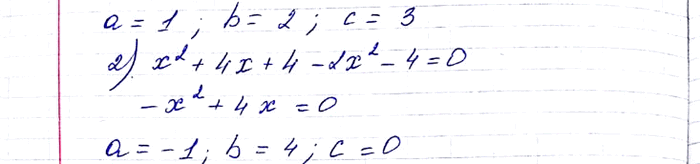 a = 1 ; b = 2 ; c = 3
2) x² + 4x + 4 - 2x² - 4 = 0
- x² + 4x = 0
a = -1; b = 4; c = 0